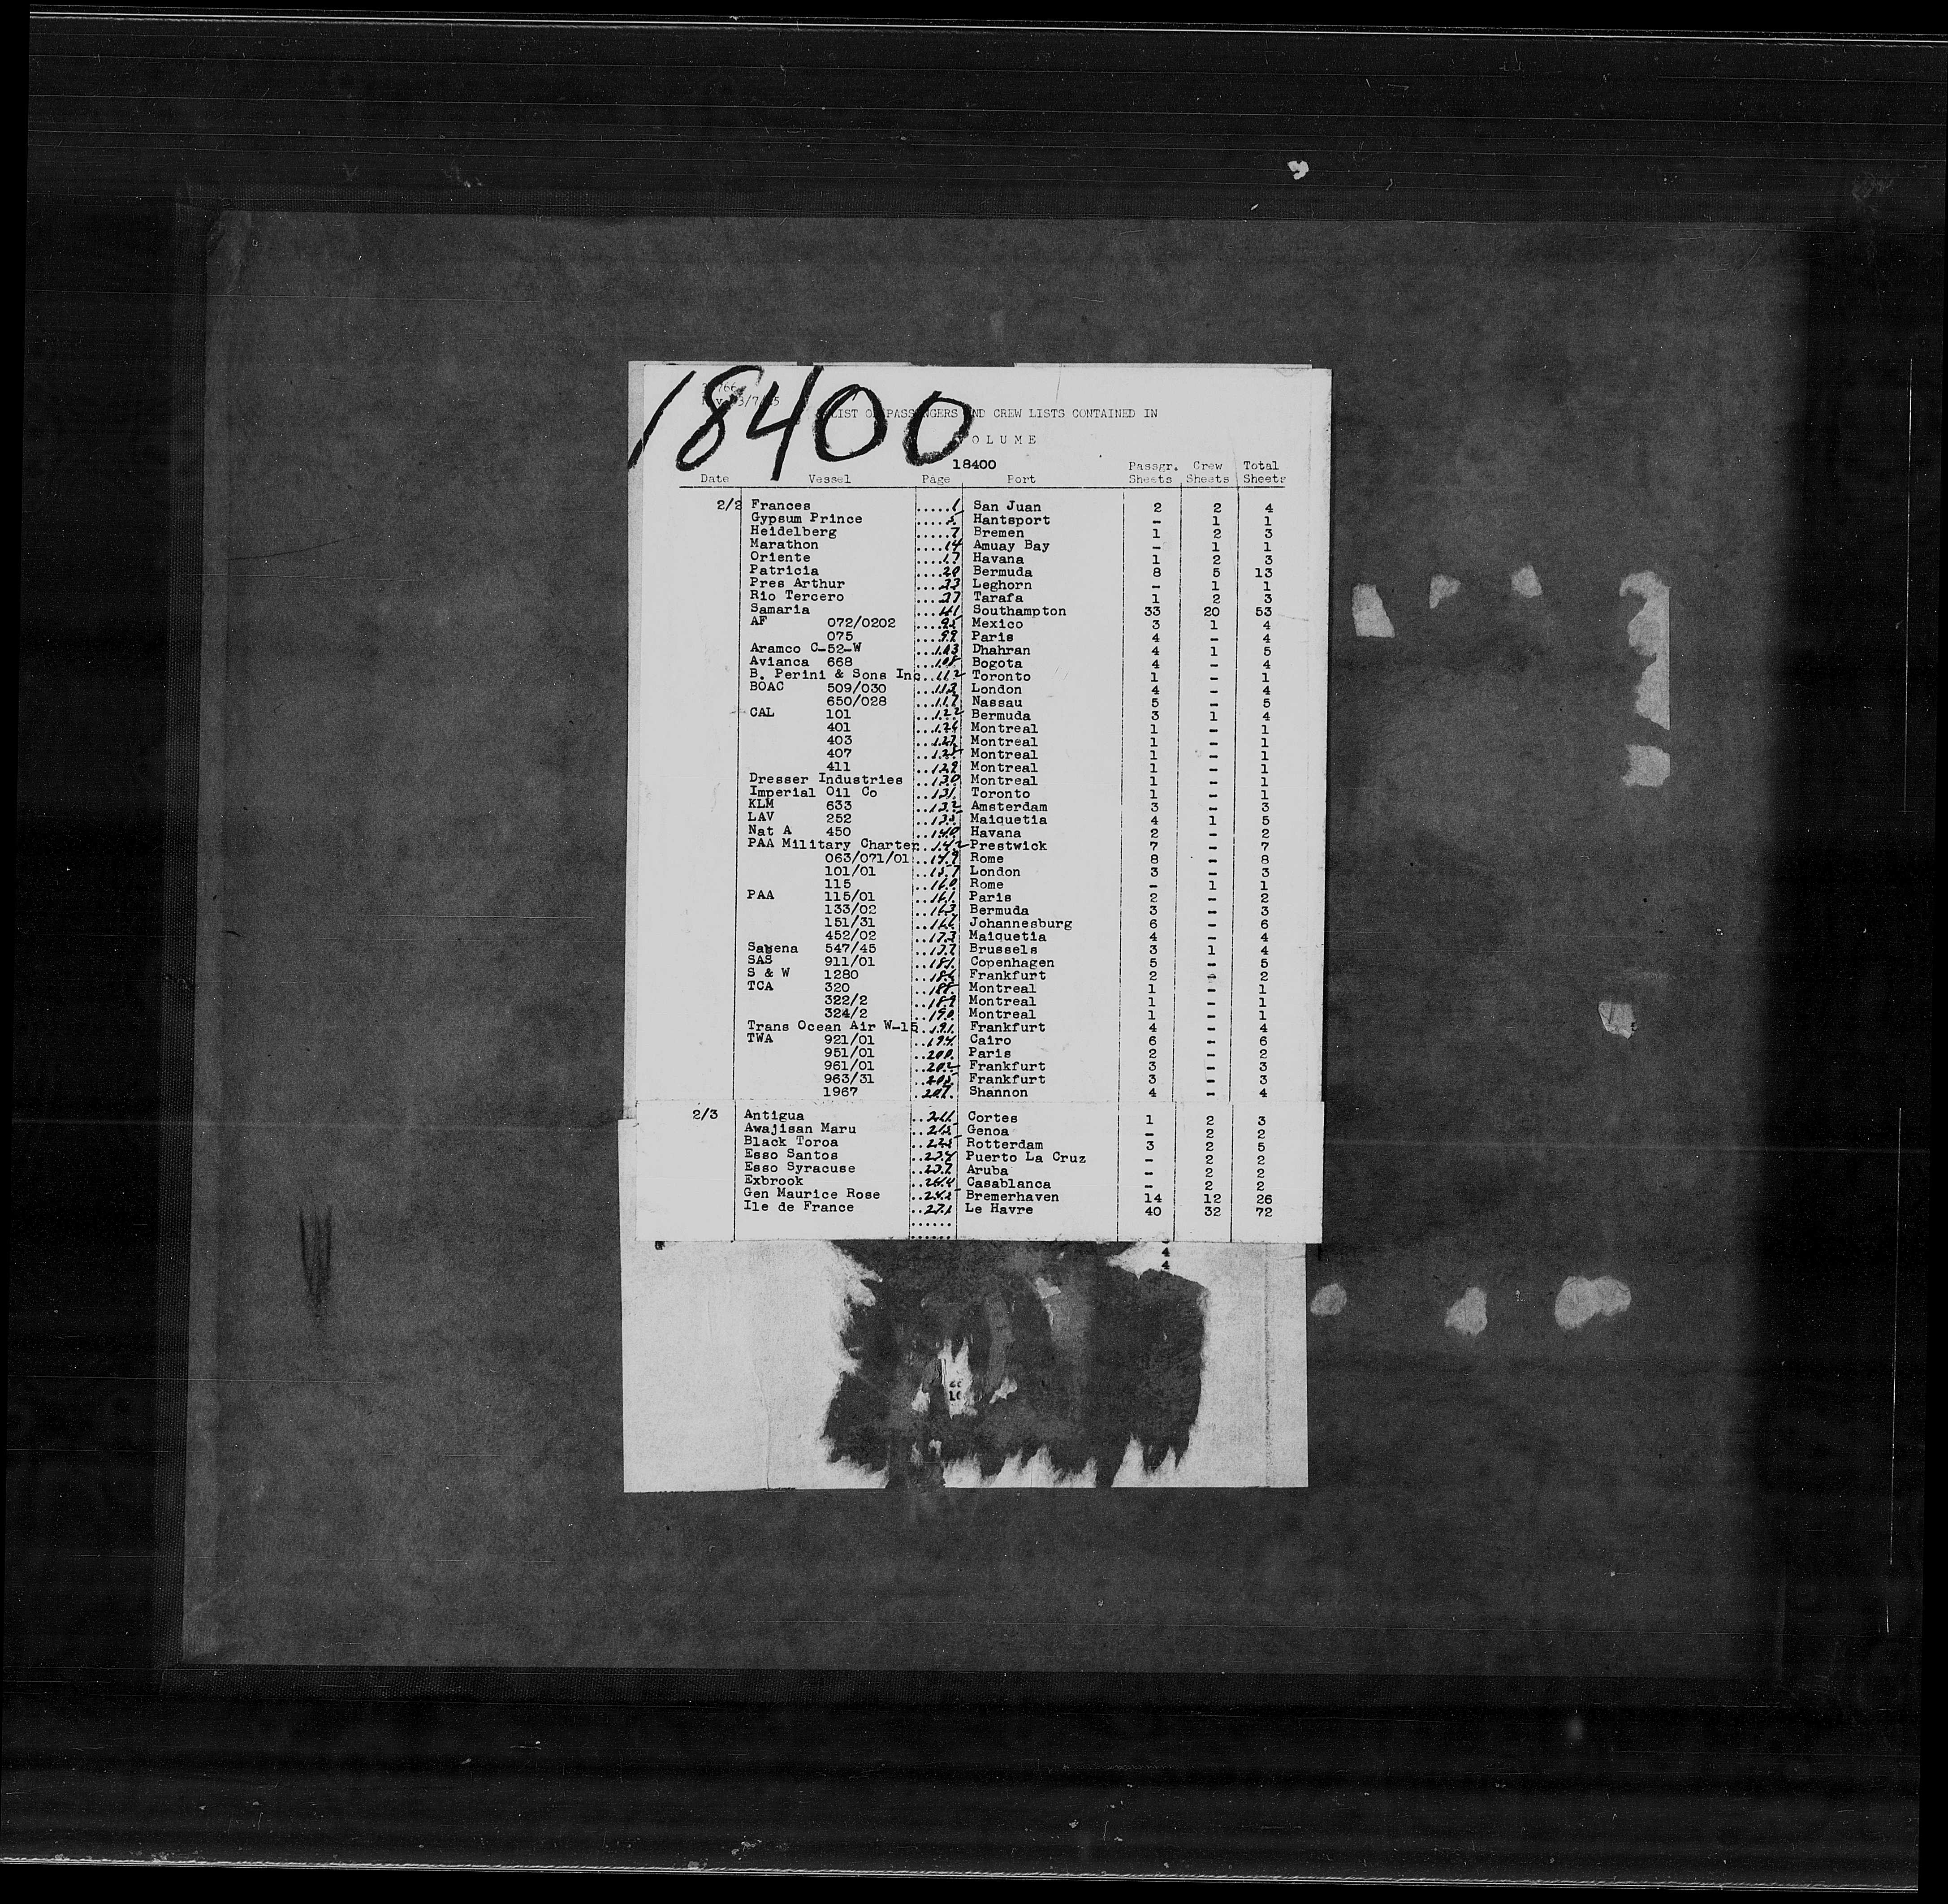 18400
LIST OF PASSENGERS AND CREW LISTS CONTAINED IN
VOLUME
18400
Date Vessel Page Port Passgr. Sheets Crew Sheets Total Sheets
2/2 Frances .....1 San Juan 2 2 4
Gypsum Prince ..... Hantsport - 1 1
Heidelberg .....7 Bremen 1 2 3
Marathon ....14 Amuay Bay - 1 1
Oriente ....17 Havana 1 2 3
Patricia ....20 Bermuda 8 5 13
Pres Arthur .... Leghorn - 1 1
Rio Tercero .... Tarafa 1 2 3
Samaria ...41 Southampton 33 20 53
AF 072/0202 ...95 Mexico 3 1 4
075 ...99 Paris 4 - 4
Aramco C-52-W ...103 Dhahran 4 1 5
Avianca 668 ...108 Bogota 4 - 4
B. Perini & Sons Inc ..112 Toronto 1 - 1
BOAC 509/030 ...113 London 4 - 4
650/028 ...117 Nassau 5 - 5
CAL 101 ..122 Bermuda 3 1 4
401 ..126 Montreal 1 - 1
403 ..127 Montreal 1 - 1
407 ..128 Montreal 1 - 1
411 ..129 Montreal 1 - 1
Dresser Industries ..130 Montreal 1 - 1
Imperial Oil Co ..131. Toronto 1 - 1
KLM 633 ..132 Amsterdam 3 - 3
LAV 252 ..135 Maiquetia 4 1 5
Nat A 450 ..140 Havana 2 - 2
PAA Military Charter ..142 Prestwick 7 - 7
063/071/01 ..149 Rome 8 - 8
101/01 ..157 London 3 - 3
115 ..160 Rome - 1 1
PAA 115/01 ..161. Paris 2 - 2
133/02 ..163 Bermuda 3 - 3
151/31 .. Johannesburg 6 - 6
452/02 ..173 Maiquetia 4 - 4
Sabena 547/45 ..177 Brussels 3 1 4
SAS 911/01 ..181. Copenhagen 5 - 5
S & W 1280 ..186 Frankfurt 2 - 2
TCA 320 ..188. Montreal 1 - 1
322/2 ..189 Montreal 1 - 1
324/2 ..190. Montreal 1 - 1
Trans Ocean Air W-15 ..191. Frankfurt 4 - 4
TWA 921/01 ..194. Cairo 6 - 6
951/01 ..200. Paris 2 - 2
961/01 ..202 Frankfurt 3 - 3
963/31 ..205 Frankfurt 3 - 3
1967 .207. Shannon 4 - 4
2/3 Antigua ..211. Cortes 1 2 3
Awajisan Maru ..215 Genoa - 2 2
Black Toroa ..225 Rotterdam 3 2 5
Esso Santos ..234 Puerto La Cruz - 2 2
Esso Syracuse ..237. Aruba - 2 2
Exbrook .. Casablanca - 2 2
Gen Maurice Rose .. Bremerhaven 14 12 26
Ile de France ..271 Le Havre 40 32 72
......
......
4
4